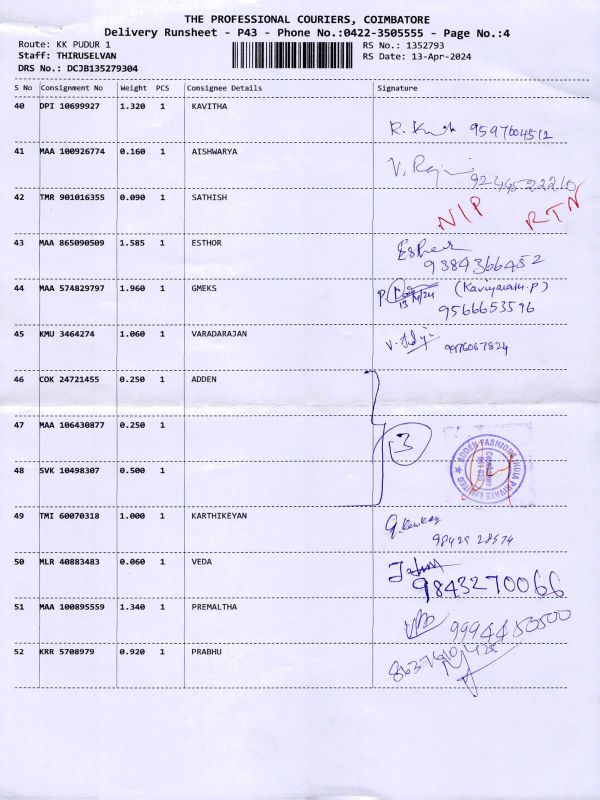 THE PROFESSIONAL COURIERS, COIMBATORE
Delivery Runsheet - P43 - Phone No.:0422-3505555 - Page No.:4
Route: KK PUDUR 1 RS No.: 1352793
Staff: THIRUSELVAN RS Date: 13-Apr-2024
DRS No.: DCJB135279304
S No Consignment No Weight PCS Consignee Details Signature
40 DPI 10699927 1.320 1 KAVITHA
9597604512
41 MAA 100926774 0.160 1 AISHWARYA
42 TMR 901016355 0.090 1 SATHISH
N/P RTN
43 MAA 865090509 1.585 1 ESTHOR
9384366452
44 MAA 574829797 1.960 1 GMEKS
9566653596
45 KMU 3464274 1.060 1 VARADARAJAN
46 COK 24721455 0.250 1 ADDEN
47 MAA 106430877 0.250 1
3
ADDEN FASHIONS INDIA PRIVATE LIMITED
48 SVK 10498307 0.500 1
49 TMI 60070318 1.000 1 KARTHIKEYAN
50 MLR 40883483 0.060 1 VEDA
9843270066
51 MAA 100895559 1.340 1 PREMALTHA
52 KRR 5708979 0.920 1 PRABHU